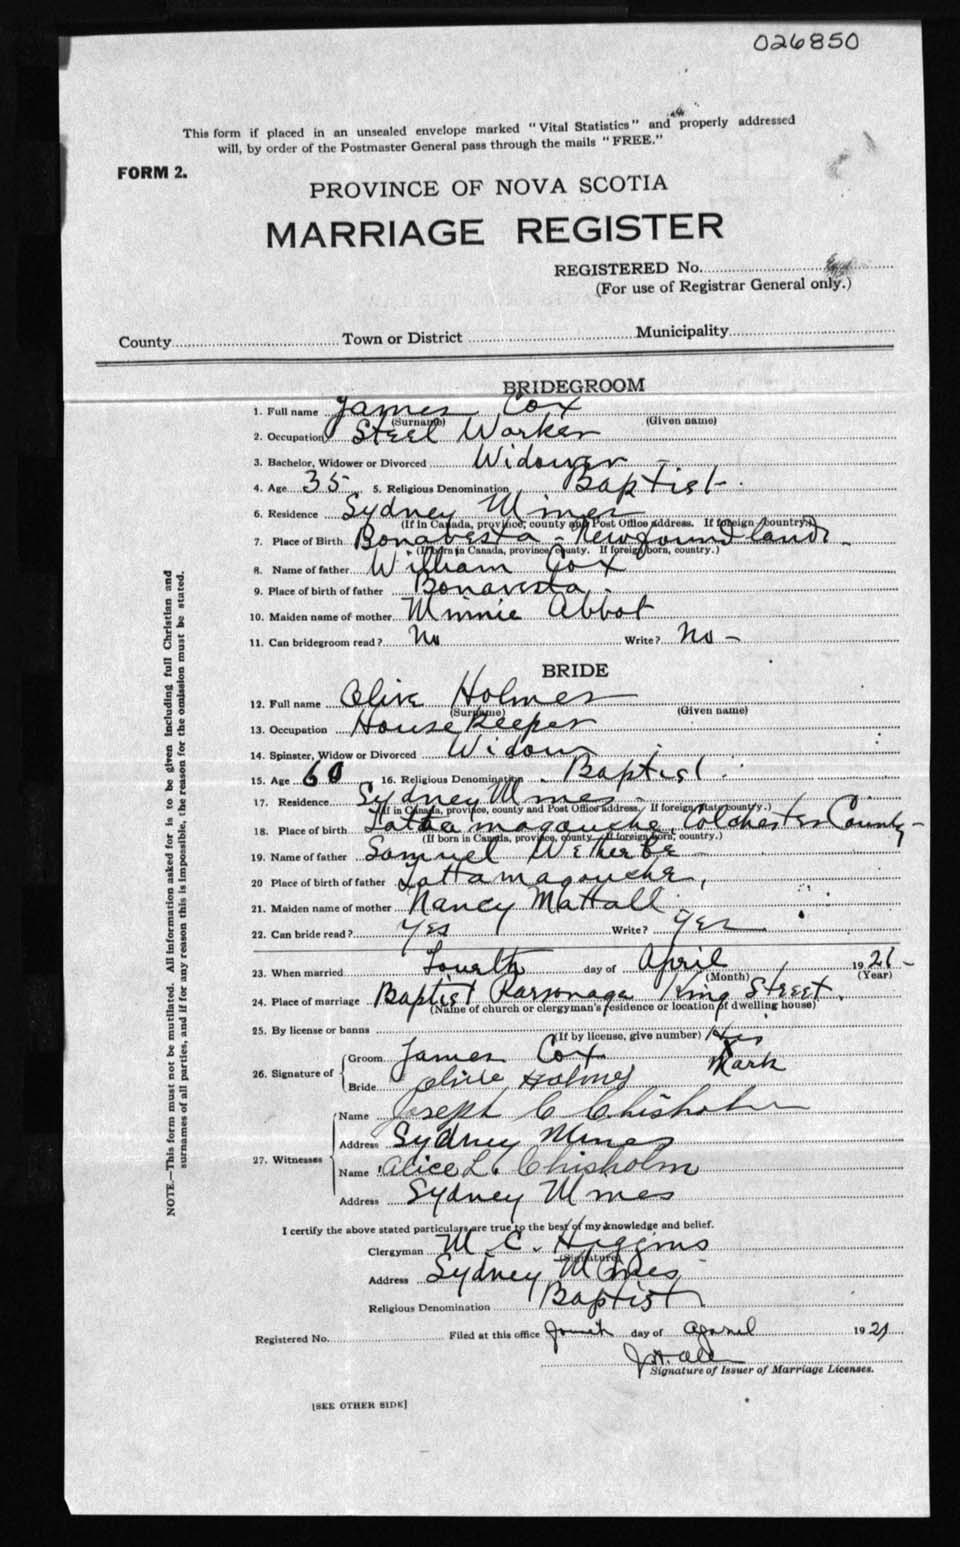 026850
This form if placed in an unsealed envelope marked "Vital Statistics" and properly addressed
will, by order of the Postmaster General pass through the mails "FREE."
FORM 2.
PROVINCE OF NOVA SCOTIA
MARRIAGE REGISTER
REGISTERED No.
(For use of Registrar General only.)
County Town or District Municipality
BRIDEGROOM
1. Full name James Cox
(Surname) (Given name)
2. Occupation Steel Worker
3. Bachelor, Widower or Divorced Widower
4. Age 35 5. Religious Denomination Baptist
6. Residence Sydney Mines
(If in Canada, province, county and Post Office address. If foreign country.)
7. Place of Birth Bonavesta - Newfoundland
(If born in Canada, province, county. If foreign born, country.)
8. Name of father William Cox
9. Place of birth of father Bonavesta
10. Maiden name of mother Minnie Abbot
11. Can bridegroom read? No Write? No -
BRIDE
12. Full name Olive Holmes
(Surname) (Given name)
13. Occupation House Keeper
14. Spinster, Widow or Divorced Widow
15. Age 60 16. Religious Denomination Baptist
17. Residence Sydney Mines
(If in Canada, province, county and Post Office address. If foreign, state country.)
18. Place of birth Tattamagouche, Colchester County
(If born in Canada, province, county. If foreign born, country.)
19. Name of father Samuel Wetherbe
20 Place of birth of father Tattamagouche,
21. Maiden name of mother Nancy Mattall
22. Can bride read? Yes Write? Yes
23. When married Fourth day of April 1921-
(Month) (Year)
24. Place of marriage Baptist Parsonage King Street.
(Name of church or clergyman's residence or location of dwelling house)
25. By license or banns
(If by license, give number) His
26. Signature of Groom James Cox X Mark
Bride Olive Holmes
27. Witnesses Name Joseph C Chisholm
Address Sydney Mines
Name Alice L. Chisholm
Address Sydney Mines
I certify the above stated particulars are true to the best of my knowledge and belief.
Clergyman M. C. Higgins
(Signature)
Address Sydney Mines
Religious Denomination Baptist
Registered No. Filed at this office Fourth day of April 1921
Signature of Issuer of Marriage Licenses.
[SEE OTHER SIDE]
NOTE.—This form must not be mutilated. All information asked for is to be given including full Christian and
surnames of all parties, and if for any reason this is impossible, the reason for the omission must be stated.